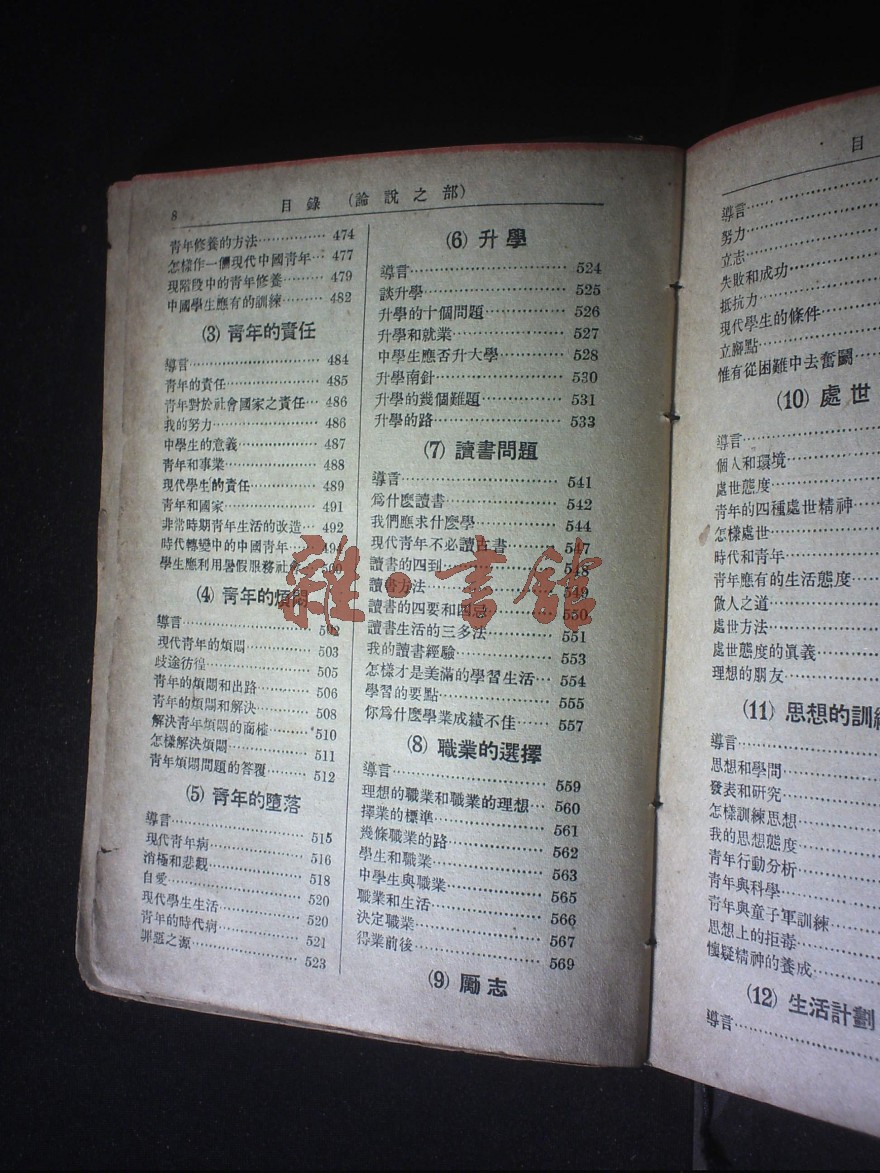 8 目錄 (論說之部)
青年修養的方法……………… 474
怎樣作一個現代中國青年… 477
現階段中的青年修養……… 479
中國學生應有的訓練……… 482
(3) 青年的責任
導言………………………… 484
青年的責任………………… 485
青年對於社會國家之責任… 486
我的努力…………………… 486
中學生的意義……………… 487
青年和事業………………… 488
現代學生的責任…………… 489
青年和國家………………… 491
非常時期青年生活的改造… 492
時代轉變中的中國青年…
學生應利用暑假服務社
(4) 青年的煩悶
導言…………………………
現代青年的煩悶…………… 503
歧途彷徨…………………… 505
青年的煩悶和出路………… 506
青年的煩悶和解決………… 508
解決青年煩悶的商榷……… 510
怎樣解決煩悶……………… 511
青年煩悶問題的答覆……… 512
(5) 青年的墮落
導言………………………… 515
現代青年病………………… 516
消極和悲觀………………… 518
自愛………………………… 520
現代學生生活……………… 520
青年的時代病……………… 521
罪惡之源…………………… 523
(6) 升學
導言………………………… 524
談升學……………………… 525
升學的十個問題…………… 526
升學和就業………………… 527
中學生應否升大學………… 528
升學南針…………………… 530
升學的幾個難題…………… 531
升學的路…………………… 533
(7) 讀書問題
導言………………………… 541
爲什麼讀書………………… 542
我們應求什麼學…………… 544
現代青年不必讀古書……… 547
讀書的四到………………… 548
讀書方法…………………… 549
讀書的四要和四忌………… 550
讀書生活的三多法………… 551
我的讀書經驗……………… 553
怎樣才是美滿的學習生活… 554
學習的要點………………… 555
你爲什麼學業成績不佳…… 557
(8) 職業的選擇
導言………………………… 559
理想的職業和職業的理想… 560
擇業的標準………………… 561
幾條職業的路……………… 562
學生和職業………………… 563
中學生與職業……………… 565
職業和生活………………… 566
決定職業…………………… 567
得業前後…………………… 569
(9) 勵志
目
導言…………………………
努力…………………………
立志…………………………
失敗和成功…………………
抵抗力………………………
現代學生的條件……………
立腳點………………………
惟有從困難中去奮鬭………
(10) 處世
導言…………………………
個人和環境…………………
處世態度……………………
青年的四種處世精神………
怎樣處世……………………
時代和青年…………………
青年應有的生活態度………
做人之道……………………
處世方法……………………
處世態度的眞義……………
理想的朋友…………………
(11) 思想的訓練
導言…………………………
思想和學問…………………
發表和研究…………………
怎樣訓練思想………………
我的思想態度………………
青年行動分析………………
青年與科學…………………
青年與童子軍訓練…………
思想上的拒毒………………
懷疑精神的養成……………
(12) 生活計劃
導言…………………………
雜·書館